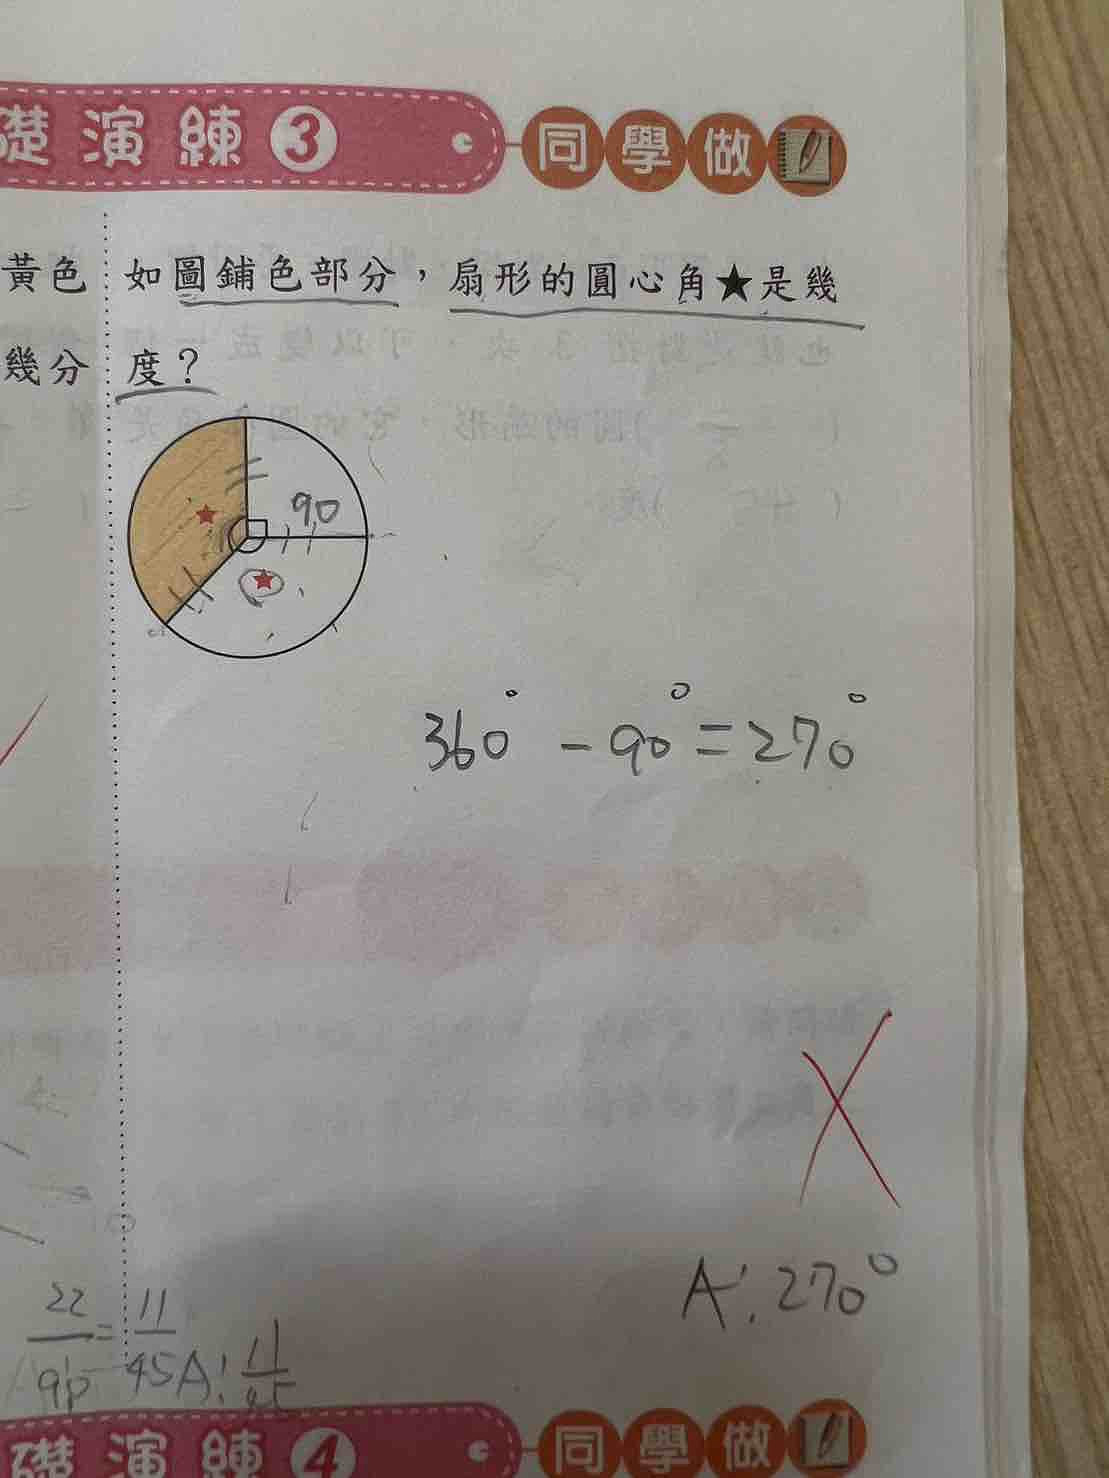 礎演練3 同學做
黃色 如圖鋪色部分，扇形的圓心角★是幾
幾分 度？
90
360° - 90° = 270°
A: 270°
22/90 = 11/45 A: 11/45
礎演練4 同學做